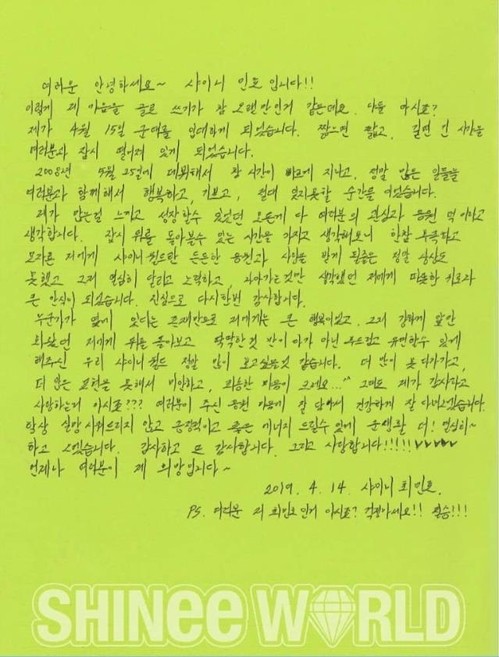 여러분 안녕하세요~ 샤이니 민호입니다!!
이렇게 제 마음을 글로 쓰기가 참 오랜만인거 같은데요. 다들 아시죠?
제가 4월 15일 군대를 입대하게 되었습니다. 짧으면 짧고, 길면 긴 시간을
여러분과 잠시 떨어져 있게 되었습니다.
2008년 5월 25일에 데뷔해서 참 시간이 빠르게 지나고, 정말 많은 일들을
여러분과 함께해서 행복하고, 기쁘고, 절대 잊지못할 순간들
제가 많은걸 느끼고 성장할수 있었던 모든게 다 여러분의 관심과 응원 덕이라고
생각합니다. 잠시 뒤를 돌아볼수 있는 시간을 가지고 생각해보니 한참 부족하고
모자른 저에게 샤이니월드란 든든한 응원과 사랑을 받게 될줄은 정말 상상도
못했고 그저 열심히 달리고 노력하고, 나아가는것만 생각했던 저에게 따뜻한 위로와
큰 안심이 되었습니다. 진심으로 다시한번 감사합니다.
누군가가 옆에 있다는 존재만으로 저에게는 큰 행복이었고, 그저 강하게 앞만
봐왔던 저에게 뒤를 돌아보고 딱딱한것 만이 아닌 부드럽고 유연할수 있게
해주신 우리 샤이니월드 정말 많이 보고싶을것 같습니다. 더 많이 못 다가가고,
더 많은 표현을 못해서 미안하고, 죄송한 마음이 크네요...^^ 그래도 제가 감사하고
사랑하는거 아시죠??? 여러분이 주신 응원 마음에 잘 담아서 건강하게 잘 다녀오겠습니다.
항상 실망시켜드리지 않고 긍정적이고 좋은 에너지 드릴수 있게 군생활 더! 열심히~
하고 오겠습니다. 감사하고 또 감사합니다. 그리고 사랑합니다!!!!!
언제나 여러분이 제 희망입니다~
2019. 4. 14. 샤이니 최민호.
PS. 여러분 저 최민호인거 아시죠? 걱정마세요!! 필승!!!
SHINee WORLD